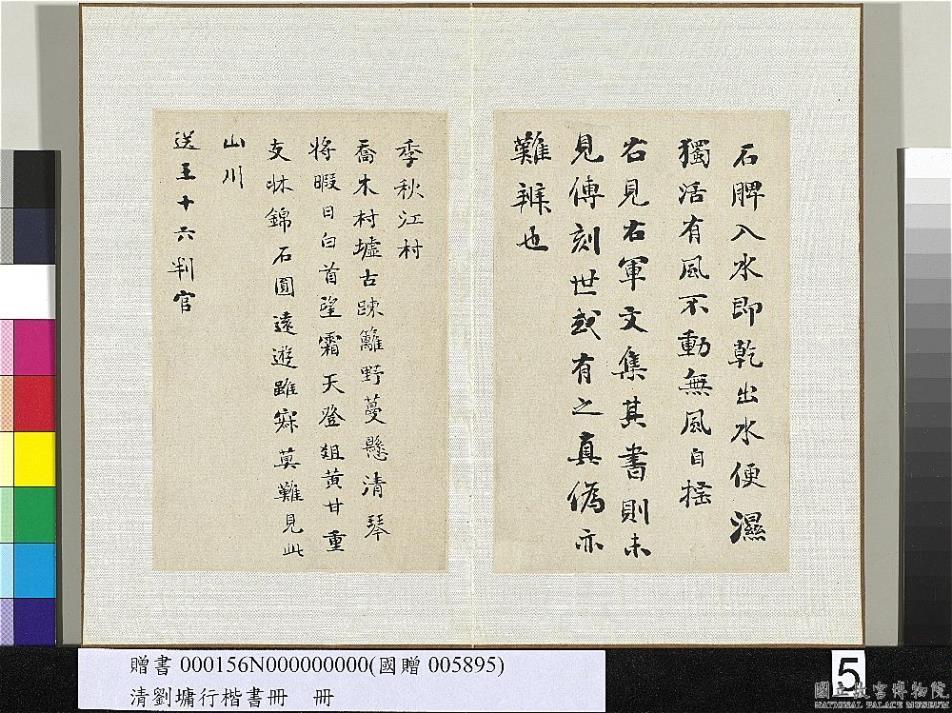 石脾入水即乾出水便濕
獨活有風不動無風自搖
右見右軍文集其書則未
見傳刻世或有之真偽亦
難辨也
季秋江村
喬木村墟古疎籬野蔓懸清琴
將暇日白首望霜天登俎黃甘重
支牀錦石圓遠遊雖寂莫難見此
山川
送王十六判官
贈書 000156N000000000(國贈 005895)
清劉墉行楷書冊 冊
5
國立故宮博物院
NATIONAL PALACE MUSEUM